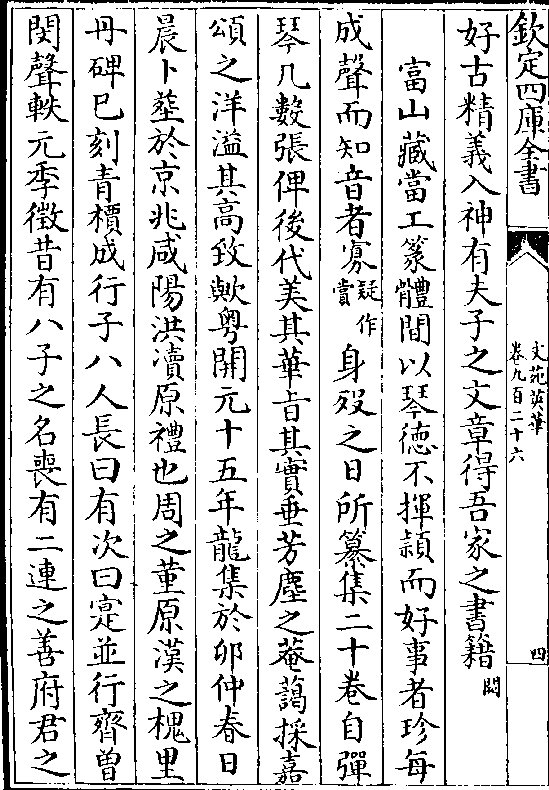 欽定四庫全書
文苑英華
卷九百二十六
四
好古精義入神有夫子之文章得吾家之書籍闕
富山藏當工篆體間以琴德不揮頴而好事者珍每
成聲而知音者寡疑作賞身殁之日所纂集二十卷自彈
琴几數張俾後代美其華旨其實垂芳塵之菴藹採嘉
頌之洋溢其高致歟粤開元十五年龍集於卯仲春日
晨卜塟於京兆咸陽洪瀆原禮也周之董原漢之槐里
丹碑已刻青檟成行子八人長曰有次曰寔並行齊曾
閔聲軼元季徵昔有八子之名喪有二連之善府君之